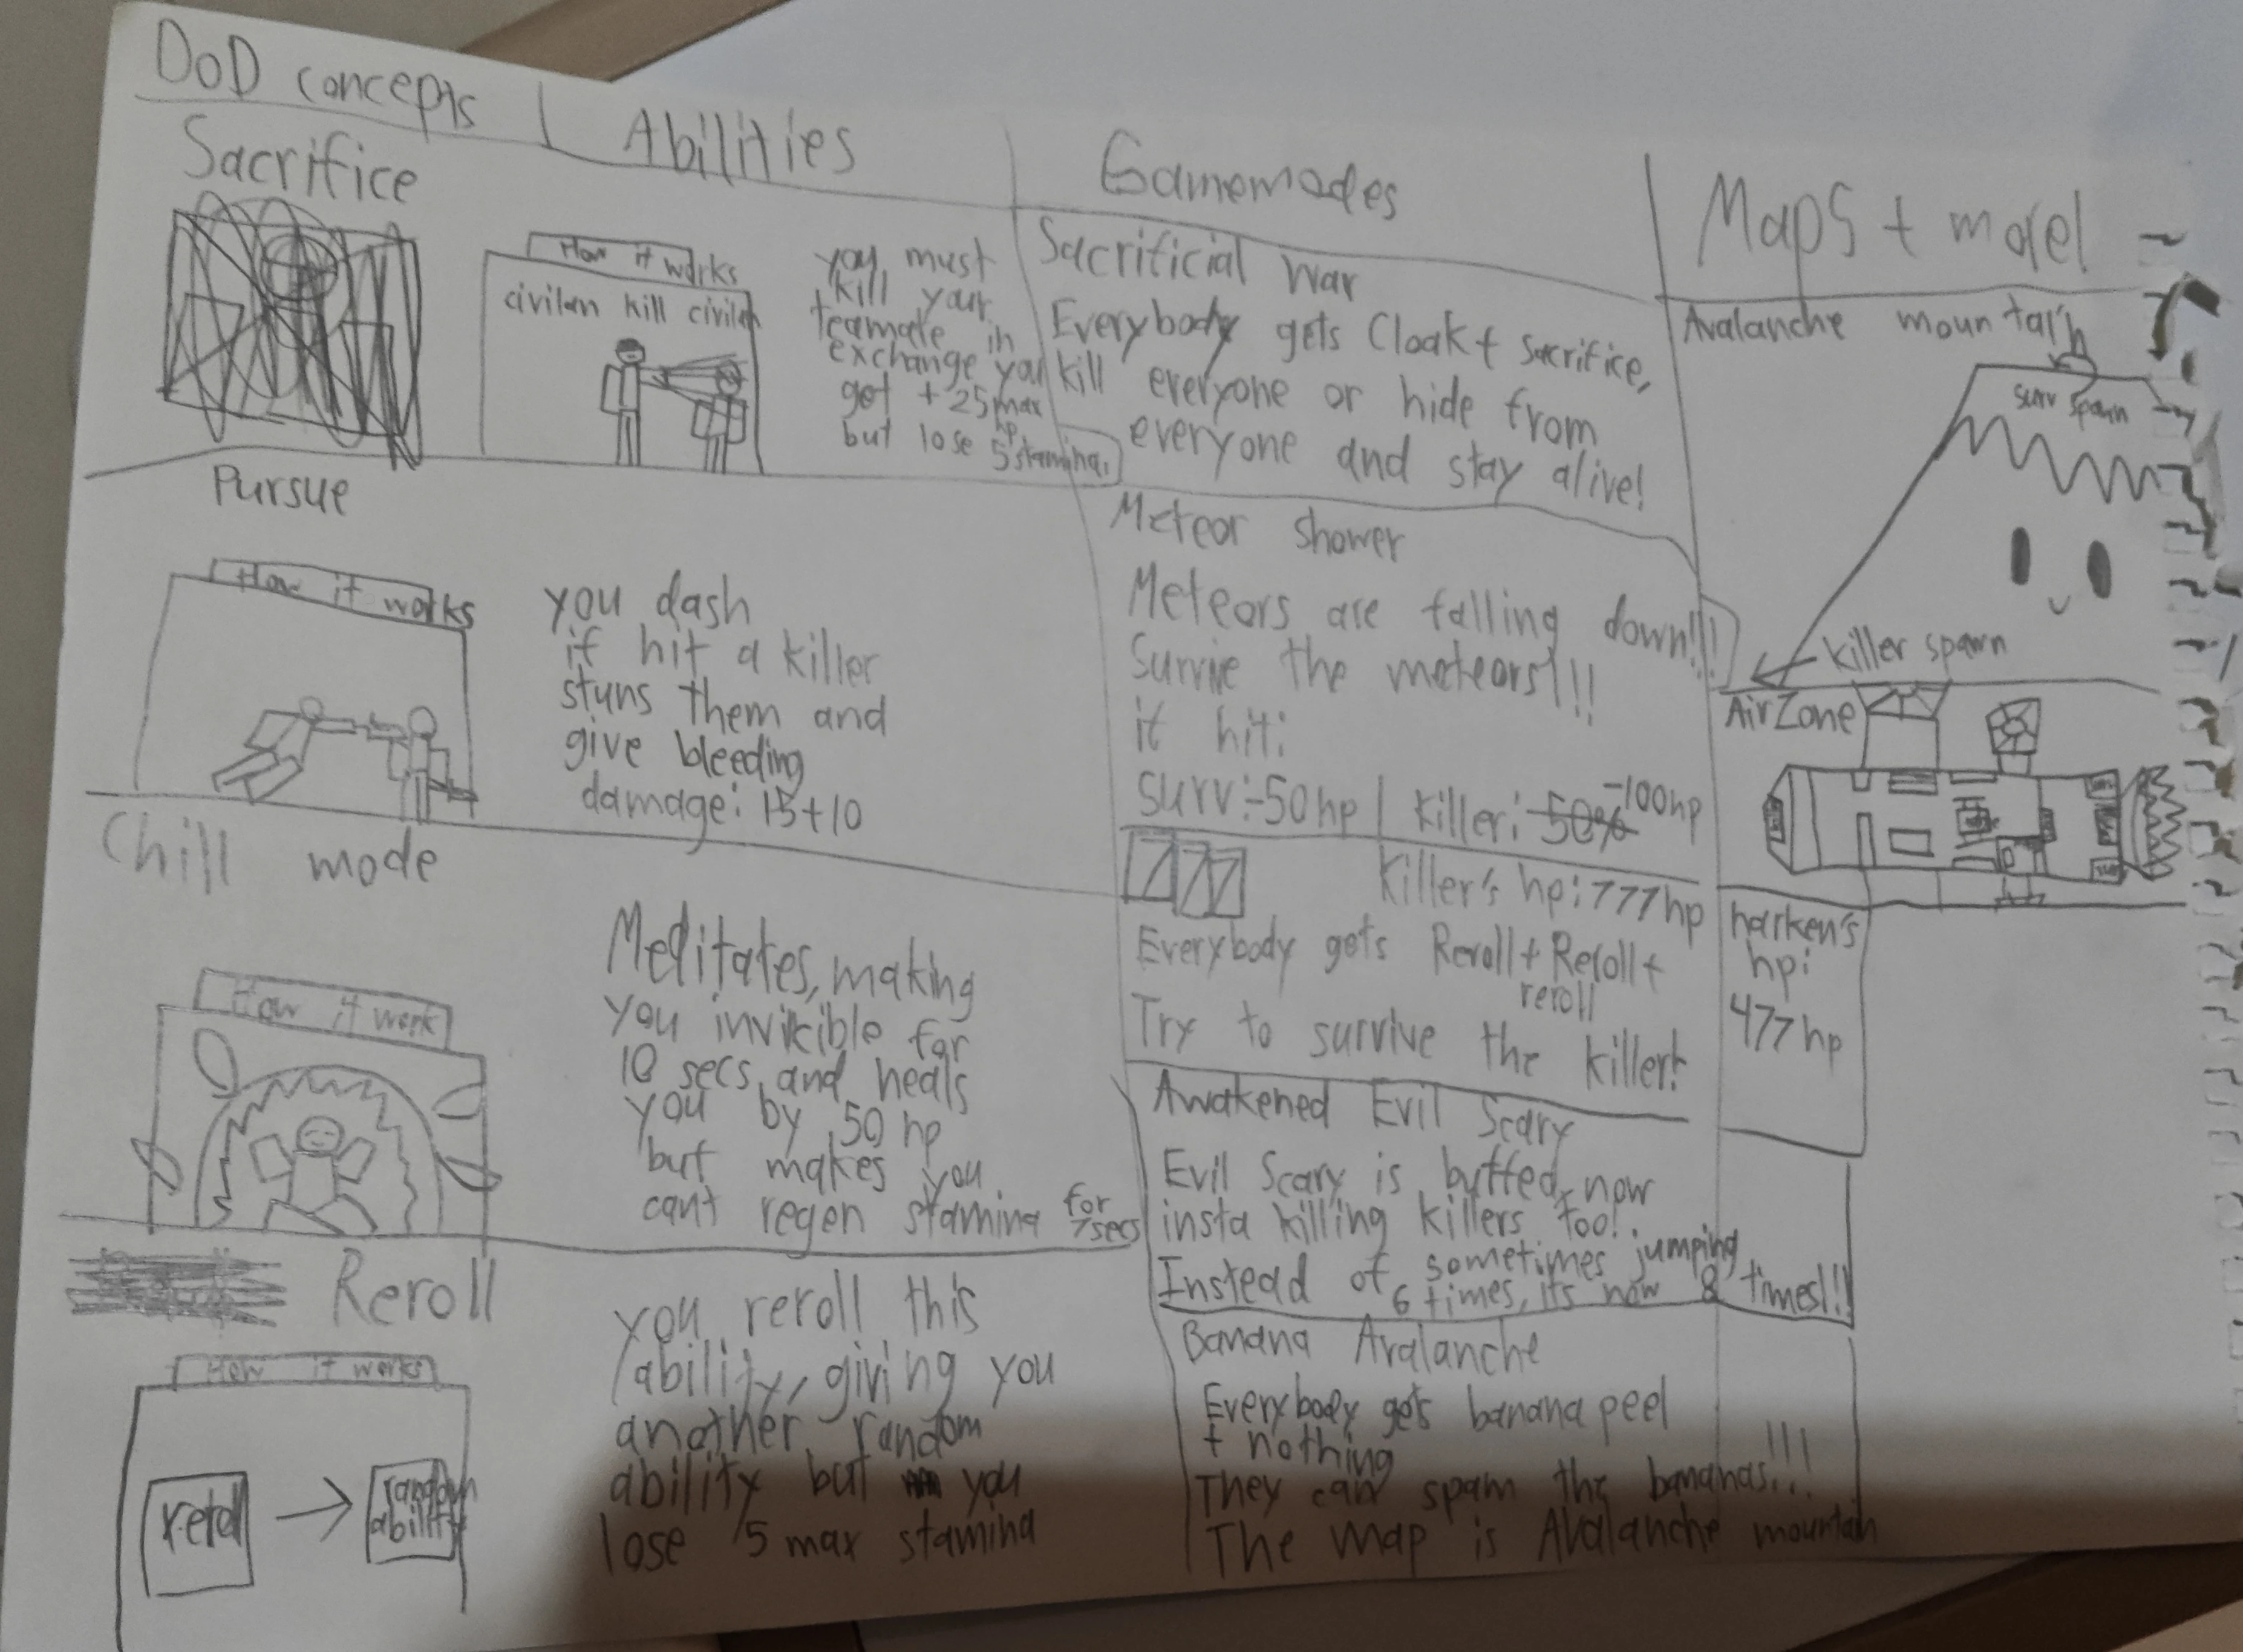 DoD concepts
Abilities
Gamemodes
Maps + model
Sacrifice
How it works
civilan kill civilan
you must
kill your
teamate in
exchange you
get + 25 max
hp
but lose 5 stamina.
Pursue
How it works
you dash
if hit a killer
stuns them and
give bleeding
damage: 15+10
Chill mode
How it work
Meditates, making
you invicible for
10 secs, and heals
you by 50 hp
but makes you
cant regen stamina for
7secs
Reroll
How it works
random
ability
you reroll this
ability, giving you
another random
ability but you
lose 5 max stamina
Sacrificial War
Everybody gets Cloak + Sacrifice,
kill everyone or hide from
everyone and stay alive!
Meteor shower
Meteors are falling down!!!
Survive the meteors!!!
it hit:
surv:-50hp | killer: 50% -100hp
777
Killer's hp: 777hp
Everybody gets Reroll + Reroll +
reroll
Try to survive the killer!
Awakened Evil Scary
Evil Scary is buffed, now
insta killing killers too!
Instead of sometimes jumping
6 times, its now 8 times!!!
Banana Avalanche
Everybody gets banana peel
+ nothing
They can spam the bananas!!!
The map is Avalanche mountain
Avalanche mountain
surv spawn
killer spawn
AirZone
harken's
hp:
477hp